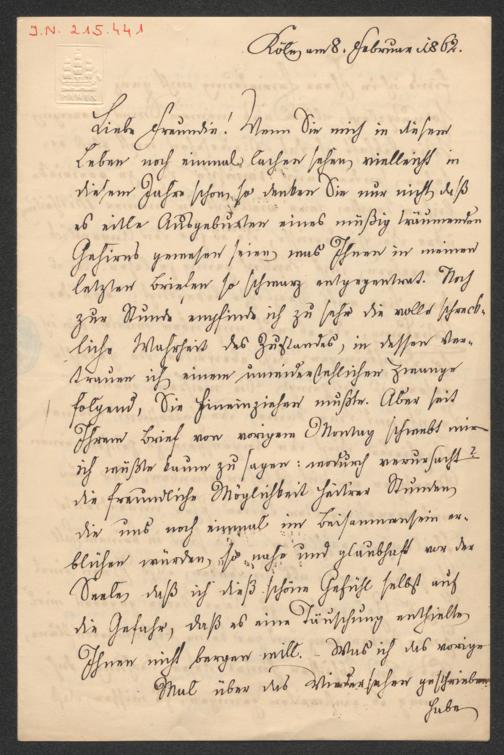 J.N. 215.441
PARIS
Köln, am 8. Februar 1862.
Liebe Freundin! Wenn Sie mich in diesem
Leben noch einmal lachen sehen, vielleicht in
diesem Jahre schon, so denken Sie nur nicht, daß
es eitle Ausgeburten eines müßig träumenden
Gehirns gewesen seien, was Ihnen in meinen
letzten Briefen so schwarz entgegentrat. Noch
zur Stunde empfinde ich zu sehr die volle schreck-
liche Wahrheit des Zustandes, in dessen Ver-
trauen ich, einem unwiderstehlichen Zwange
folgend, Sie hineinziehen mußte. Aber seit
Ihrem Brief von vorigem Montag schwebt mir
ich wüßte kaum zu sagen: wodurch verursacht?
die freundliche Möglichkeit heiterer Stunden,
die uns noch einmal im Beisammensein er-
blühen würden, so nahe und glaubhaft vor der
Seele, daß ich dieß schöne Gefühl selbst auf
die Gefahr, daß es eine Täuschung enthielte,
Ihnen nicht bergen will. – Was ich das vorige
Mal über das Wiedersehen geschrieben
habe